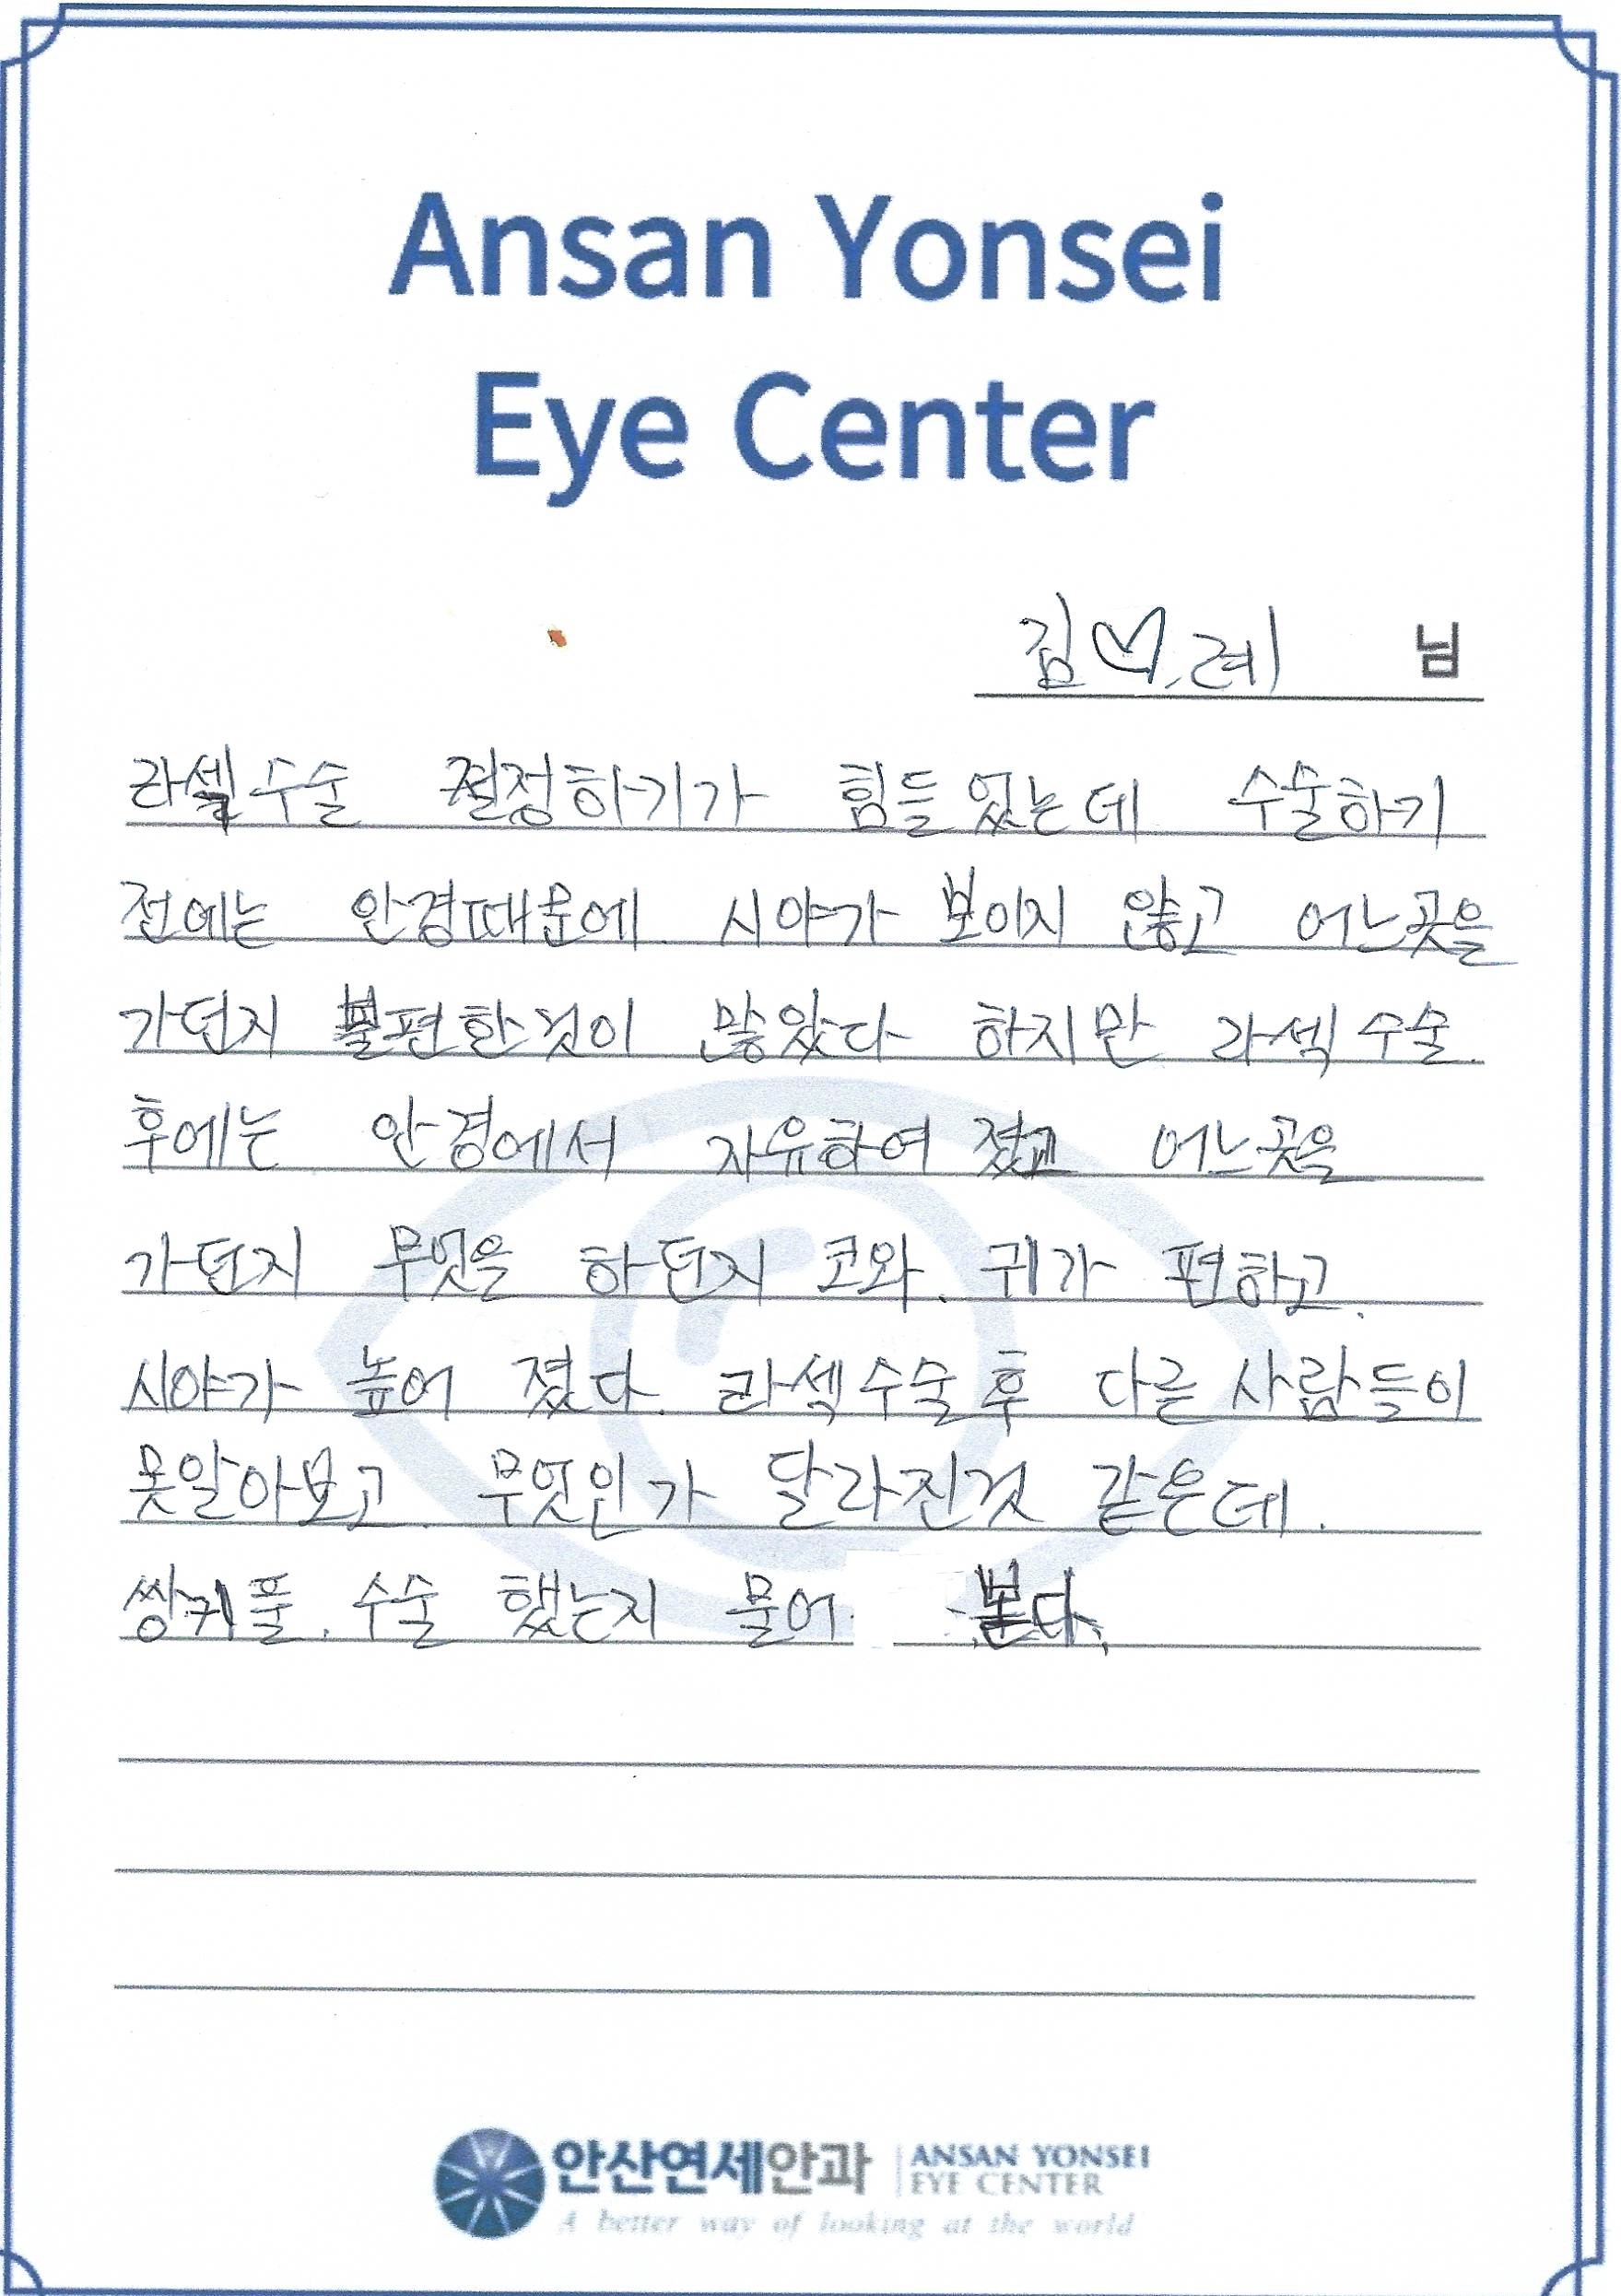 Ansan Yonsei
Eye Center
김♡례 님
라섹수술 결정하기가 힘들었는데 수술하기
전에는 안경때문에 시야가 보이지 않고 어느곳을
가던지 불편한것이 많았다 하지만 라섹수술.
후에는 안경에서 자유하여 졌고 어느곳을
가던지 무엇을 하던지 코와. 귀가 편하고.
시야가 높어 졌다. 라섹수술후 다른사람들이
못알아보고. 무엇인가 달라진것 같은데.
쌍커풀. 수술 했는지 물어. 본다.
안산연세안과 ANSAN YONSEI
EYE CENTER
A better way of looking at the world